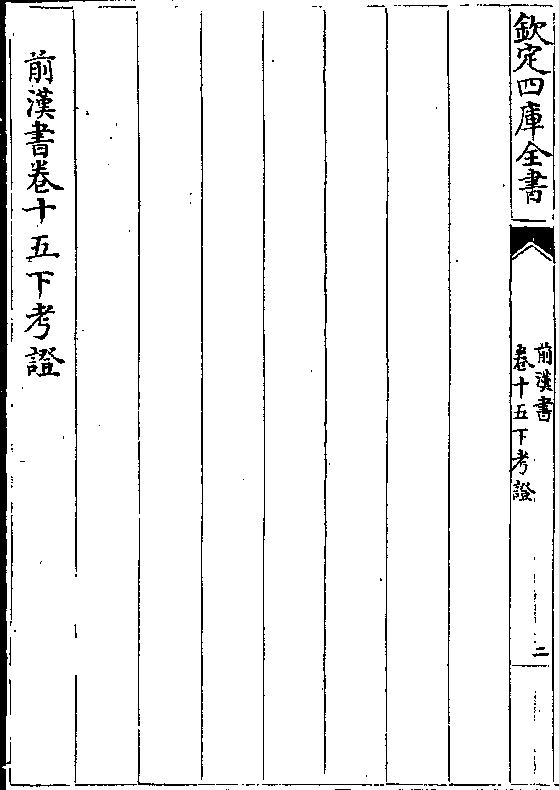 欽定四庫全書
前漢書
卷十五下考證
二
前漢書卷十五下考證